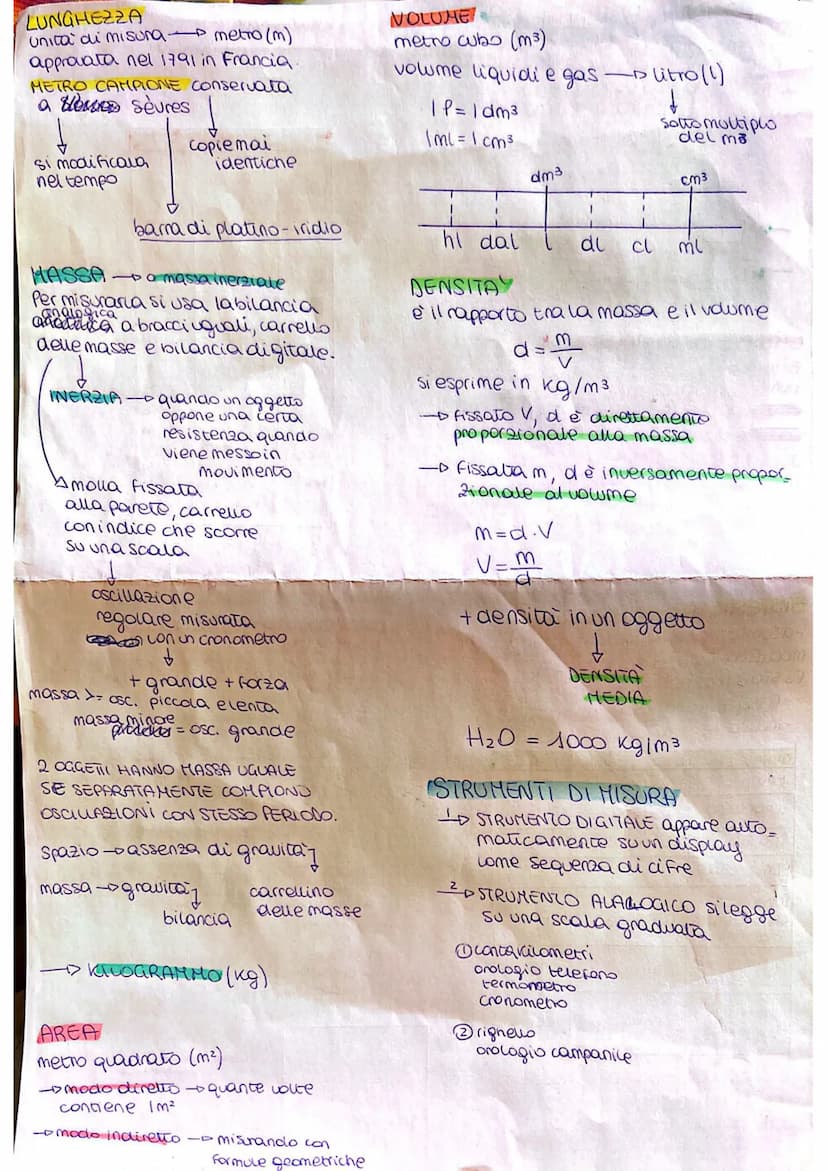 LUNGHEZZA
unità di misura → metro (m)
approvata nel 1791 in Francia.
METRO CAMPIONE conservata
a Sèvres
si modificava
nel tempo
copie mai
identiche
barra di platino-iridio
MASSA → o massa inerziale
Per misurarla si usa la bilancia
analogica
a bracci uguali, carrello
delle masse e bilancia digitale.
INERZIA → quando un oggetto
oppone una certa
resistenza quando
viene messo in
movimento
molla fissata
alla parete, carrello
con indice che scorre
su una scala
oscillazione
regolare misurata
con un cronometro
+ grande + forza
massa > = osc. piccola e lenta
massa minore
= osc. grande
2 OGGETTI HANNO MASSA UGUALE
SE SEPARATAMENTE COMPIONO
OSCILLAZIONI CON STESSO PERIODO.
spazio → assenza di gravità
massa → gravità
bilancia
carrellino
delle masse
→ KILOGRAMMO (kg)
AREA
metro quadrato (m²)
→ modo diretto → quante volte
contiene 1m²
→ modo indiretto → misurando con
formule geometriche
VOLUME
metro cubo (m³)
volume liquidi e gas → litro (l)
sottomultiplo
del m³
1 l = 1 dm³
1 ml = 1 cm³
dm³ cm³
hl dal l dl cl ml
DENSITA'
è il rapporto tra la massa e il volume
d = m/V
si esprime in kg/m³
→ fissato V, d è direttamento
proporzionale alla massa
→ fissata m, d è inversamente propor-
zionale al volume
m = d · V
V = m/d
+ densità in un oggetto
DENSITÀ
MEDIA
H₂O = 1000 kg/m³
STRUMENTI DI MISURA
1→ STRUMENTO DIGITALE appare auto-
maticamente su un display
come sequenza di cifre
2→ STRUMENTO ALALOGICO si legge
su una scala graduata
① contakilometri
orologio telefono
termometro
cronometro
② righello
orologio campanile